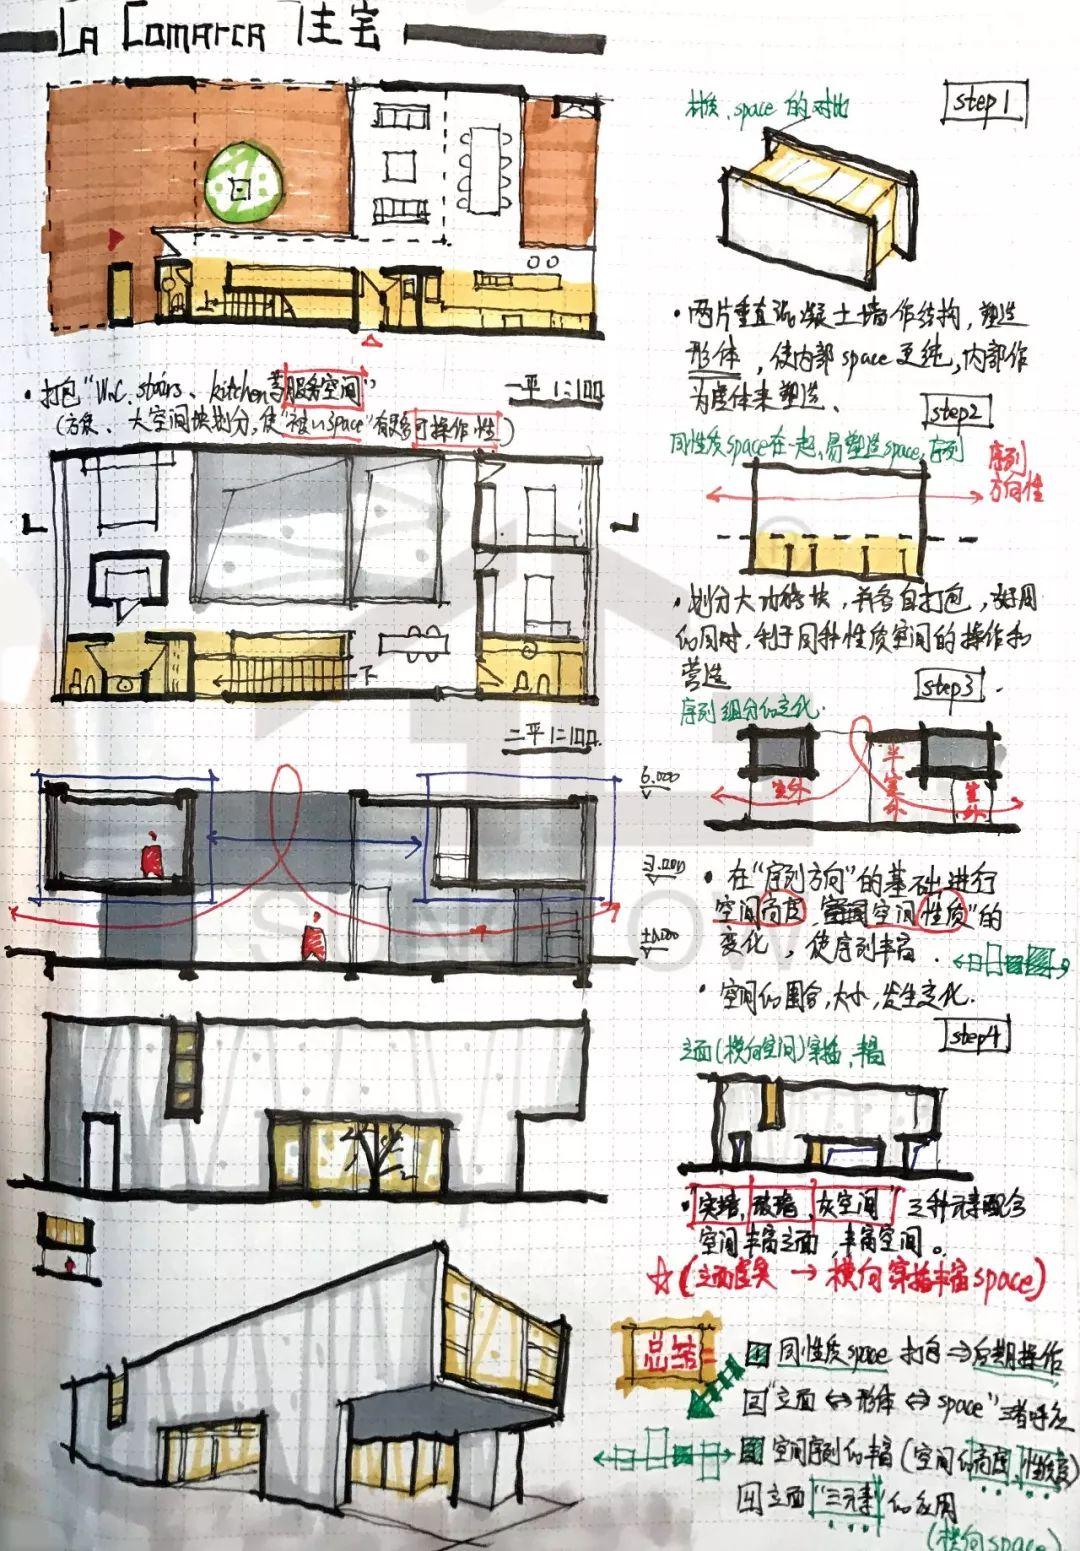 LA COMARCA 住宅
step1
材质、space 的对比
·两片垂直混凝土墙作结构,塑造
形体,使内部space更纯,内部作
为虚体来塑造、
·打包“W.C、stairs、kitchen等服务空间”
(方便、大空间块划分,使“被nspace”有更多可操作性)
一平 1:100
step2
同性质space在一起,易塑造space序列
序列
方向性
·划分大功能块,并各自打包,好用
的同时,利于同种性质空间的操作和
营造
下
二平 1:100
step3
序列组分的变化.
半室外
室外
室外
6.000
3.000
±0.000
·在“序列方向”的基础进行
空间高度、空间性质”的
变化,使序列丰富.
·空间的围合,大小,发生变化.
SUNLOW
®
step4
立面(横向空间)穿插,丰富
·“实墙,玻璃,灰空间”三种元素配合
空间丰富立面,丰富空间。
☆(立面虚实→横向穿插丰富space)
总结
1 同性质space 打包→后期操作
2 “立面⇔形体⇔space”三者呼应
3 空间序列的丰富(空间的高度,性质)
4 立面“三元素”的应用
(横向space)